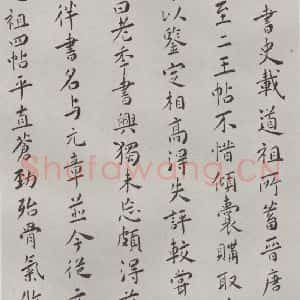 書史載道祖所蓄晉唐
至二王帖不惜傾囊購取
以鑒定相高得失評較嘗
曰老來書興獨未忘頗得
伴書名与元章並今從
祖四帖平直蒼勁殆骨氣
Shufawang.CN